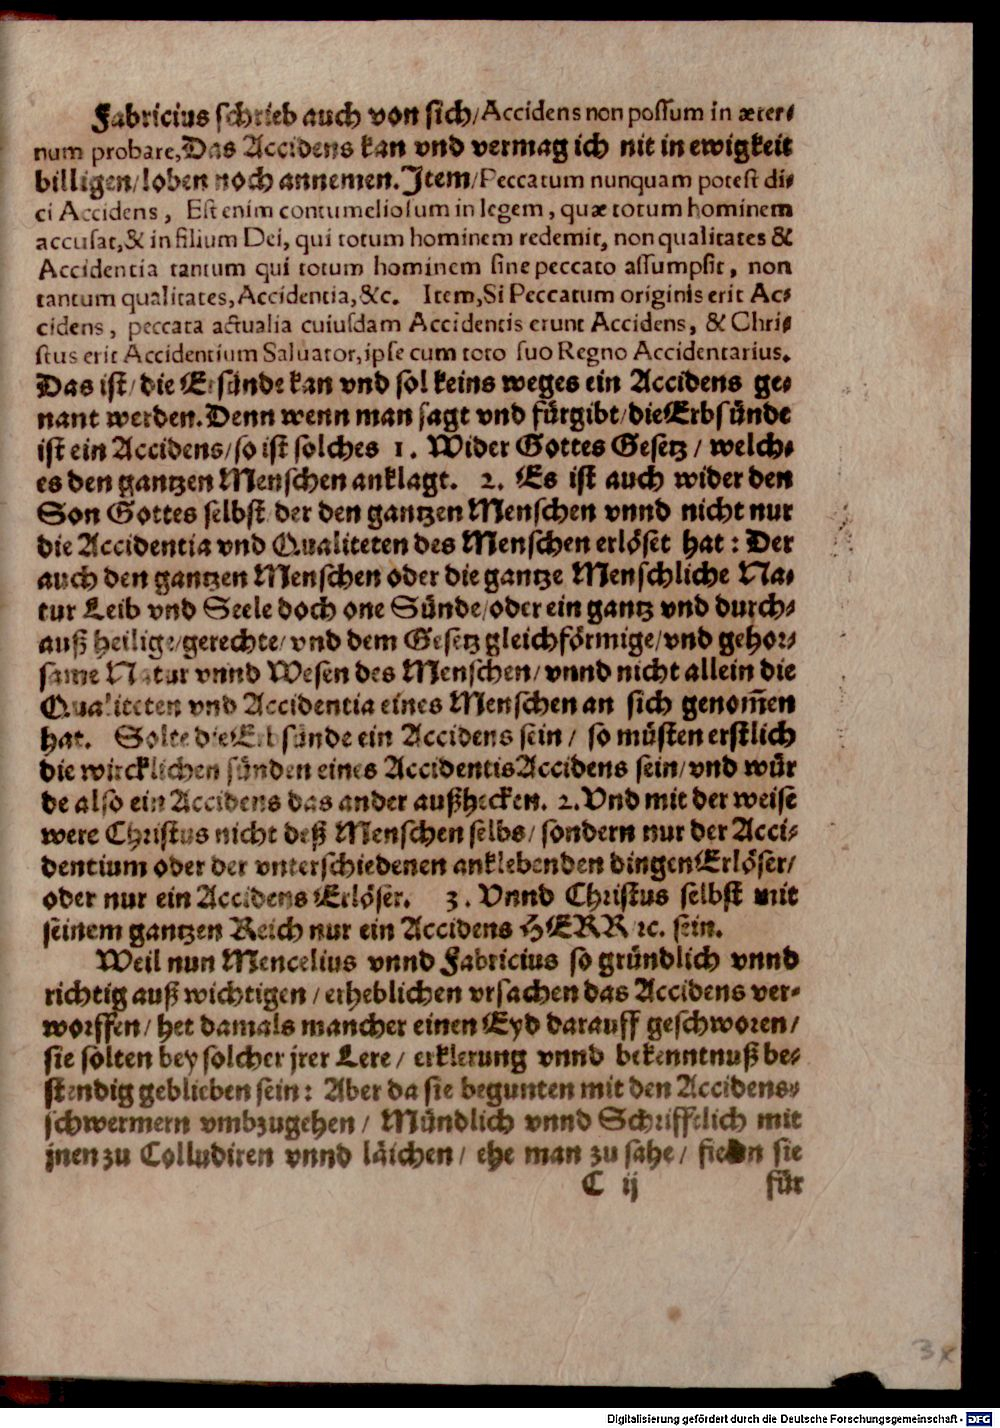 Fabricius schrieb auch von sich/Accidens non possum in æter-
num probare,Das Accidens kan vnd vermag ich nit in ewigkeit
billigen/loben noch annemen.Item/Peccatum nunquam potest di-
ci Accidens, Est enim contumeliosum in legem, quæ totum hominem
accusat,& in filium Dei, qui totum hominem redemit, non qualitates &
Accidentia tantum qui totum hominem sine peccato assumpsit, non
tantum qualitates, Accidentia,&c. Item,Si Peccatum originis erit Ac-
cidens, peccata actualia cuiusdam Accidentis erunt Accidens, & Chri-
stus erit Accidentium Saluator,ipse cum toto suo Regno Accidentarius.
Das ist/die Erbsünde kan vnd sol keins weges ein Accidens ge-
nant werden.Denn wenn man sagt vnd fürgibt/die Erbsünde
ist ein Accidens/so ist solches 1. Wider Gottes Gesetz/ welch-
es den gantzen Menschen anklagt. 2. Es ist auch wider den
Son Gottes selbst/der den gantzen Menschen vnnd nicht nur
die Accidentia vnd Qualiteten des Menschen erlöset hat: Der
auch den gantzen Menschen oder die gantze Menschliche Na-
tur Leib vnd Seele doch one Sünde/oder ein gantz vnd durch-
auß heilige/gerechte/vnd dem Gesetz gleichförmige/vnd gehor-
same Natur vnnd Wesen des Menschen/vnnd nicht allein die
Qualiteten vnd Accidentia eines Menschen an sich genom̃en
hat. Solte die Erbsünde ein Accidens sein/ so müsten erstlich
die wircklichen sünden eines Accidentis Accidens sein/vnd wür
de also ein Accidens das ander außhecken. 2. Vnd mit der weise
were Christus nicht deß Menschen selbs/sondern nur der Acci-
dentium oder der vnterschiedenen anklebenden dingen Erlöser/
oder nur ein Accidens Erlöser. 3. Vnnd Christus selbst mit
seinem gantzen Reich nur ein Accidens HERR ꝛc. sein.
Weil nun Mencelius vnnd Fabricius so gründlich vnnd
richtig auß wichtigen/erheblichen vrsachen das Accidens ver-
worffen/het damals mancher einen Eyd darauff geschworen/
sie solten bey solcher jrer Lere/ erklerung vnnd bekenntnuß be-
stendig geblieben sein: Aber da sie begunten mit den Accidens-
schwermern vmbzugehen/ Mündlich vnnd Schrifftlich mit
jnen zu Colludiren vnnd läichen/ ehe man zu sahe/ fielen sie
C ij für
3x
Digitalisierung gefördert durch die Deutsche Forschungsgemeinschaft - DFG